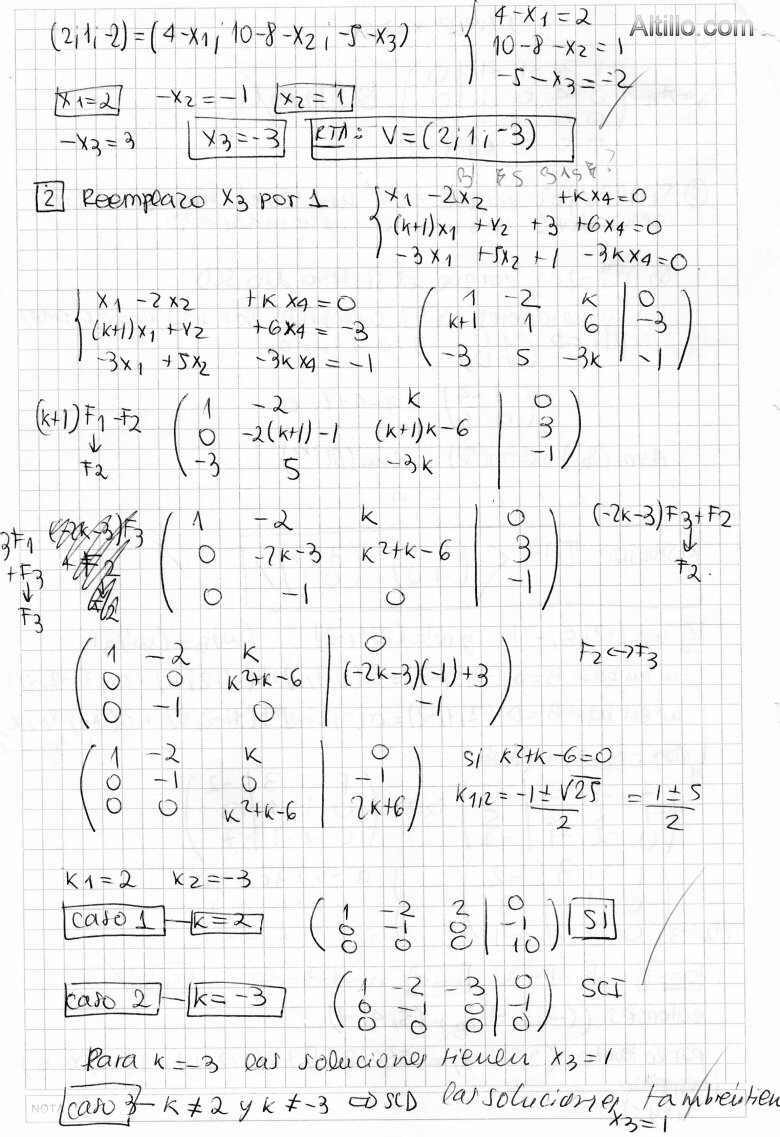 Altillo.com
(2;1;-2)=(4-x1; 10-8-x2; -5-x3) { 4-x1=2
10-8-x2=1
-5-x3=-2
x1=2 -x2=-1 x2=1
-x3=3 x3=-3 RTA: V=(2;1;-3)
2 Reemplazo x3 por 1 { x1 -2x2 +kx4=0
(k+1)x1 +x2 +3 +6x4=0
-3x1 +5x2 +1 -3kx4=0
{ x1 -2x2 +kx4=0 ( 1 -2 k | 0
(k+1)x1 +x2 +6x4=-3 k+1 1 6 | -3
-3x1 +5x2 -3kx4=-1 -3 5 -3k | -1 )
(k+1)F1-F2 ( 1 -2 k | 0
↓ 0 -2(k+1)-1 (k+1)k-6 | 3
F2 -3 5 -3k | -1 )
3F1 ( 1 -2 k | 0 (-2k-3)F3+F2
+F3 0 -2k-3 k²+k-6 | 3 ↓
↓ 0 -1 0 | -1 ) F2.
F3
( 1 -2 k | 0 F2↔F3
0 0 k²+k-6 | (-2k-3)(-1)+3
0 -1 0 | -1 )
( 1 -2 k | 0 si k²+k-6=0
0 -1 0 | -1 k1,2=-1±√25/2 = 1±5/2
0 0 k²+k-6 | 2k+6 )
k1=2 k2=-3
caso 1 - k=2 ( 1 -2 2 | 0 SI
0 -1 0 | -1
0 0 0 | 10 )
caso 2 - k=-3 ( 1 -2 -3 | 0 SCI
0 -1 0 | -1
0 0 0 | 0 )
Para k=-3 las soluciones tienen x3=1
caso 3 - k≠2 y k≠-3 ⇒ SCD las soluciones también tien
x3=1